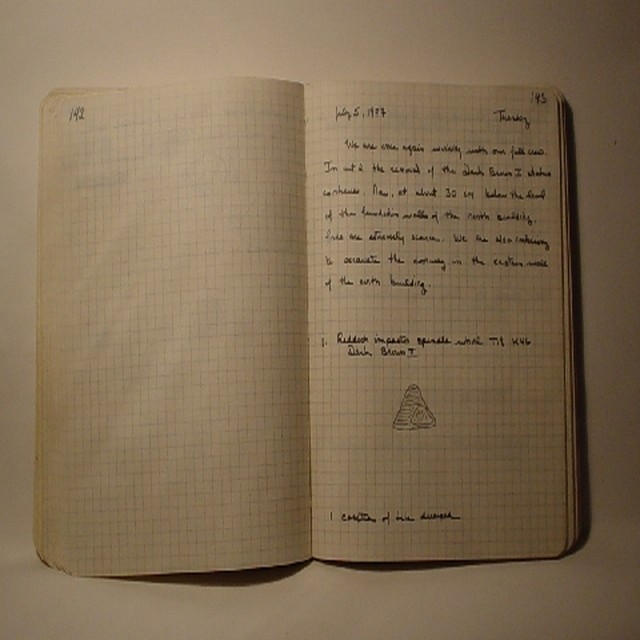 142
143
July 5, 1977 Tuesday
We are once again working with our full crew.
In unit 2 the removal of the Dark Brown I
continues. Now, at about 30 cm below the level
of the foundation walls of the north building,
finds are extremely scarce. We are also continuing
to excavate the doorway in the eastern wall
of the north building.
1. Reddish spindle whorl
Dark Brown I
1